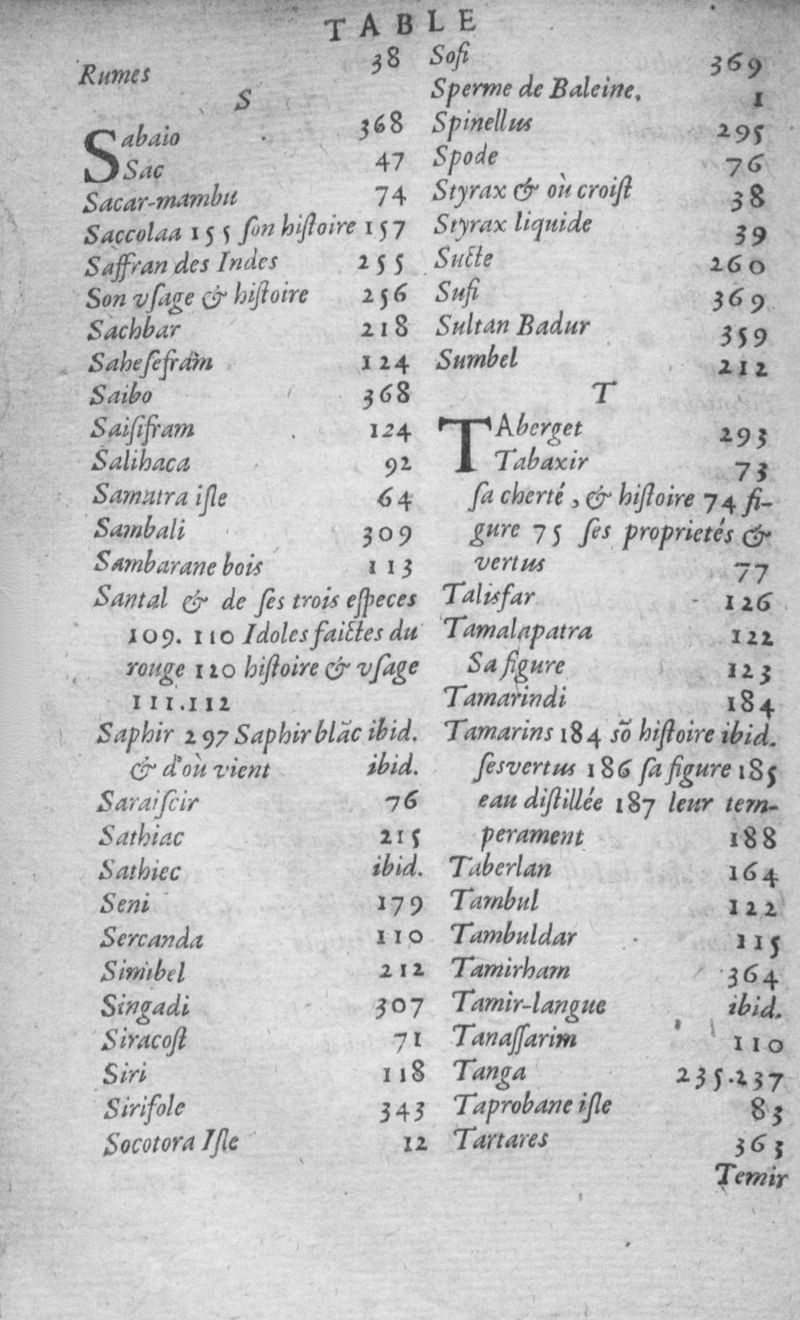 TABLE
Rumes 38
S
Sabaio 368
Sac 47
Sacar-mambu 74
Saccolaa 155 ſon hiſtoire 157
Saffran des Indes 255
Son vſage & hiſtoire 256
Sachbar 218
Saheſefram 124
Saibo 368
Saiſifram 124
Salihaca 92
Samatra iſle 64
Sambali 309
Sambarane bois 113
Santal & de ſes trois eſpeces
109. 110 Idoles faictes du
rouge 120 hiſtoire & vſage
111.112
Saphir 297 Saphir blãc ibid.
& d'où vient ibid.
Saraiſcir 76
Sathiac 215
Sathiec ibid.
Seni 179
Sercanda 110
Simibel 212
Singadi 307
Siracoſt 71
Siri 118
Sirifole 343
Socotora Iſle 12
Sofi 369
Sperme de Baleine. 1
Spinellus 295
Spode 76
Styrax & où croiſt 38
Styrax liquide 39
Sucte 260
Sufi 369
Sultan Badur 359
Sumbel 212
T
TAberget 293
Tabaxir 73
ſa cherté, & hiſtoire 74 fi-
gure 75 ſes proprietés &
vertus 77
Talisfar 126
Tamalapatra 122
Sa figure 123
Tamarindi 184
Tamarins 184 sõ hiſtoire ibid.
ſesvertus 186 ſa figure 185
eau diſtillée 187 leur tem-
perament 188
Taberlan 164
Tambul 122
Tambuldar 115
Tamirham 364
Tamir-langue ibid.
Tanaſſarim 110
Tanga 235.237
Taprobane iſle 83
Tartares 363
Temir